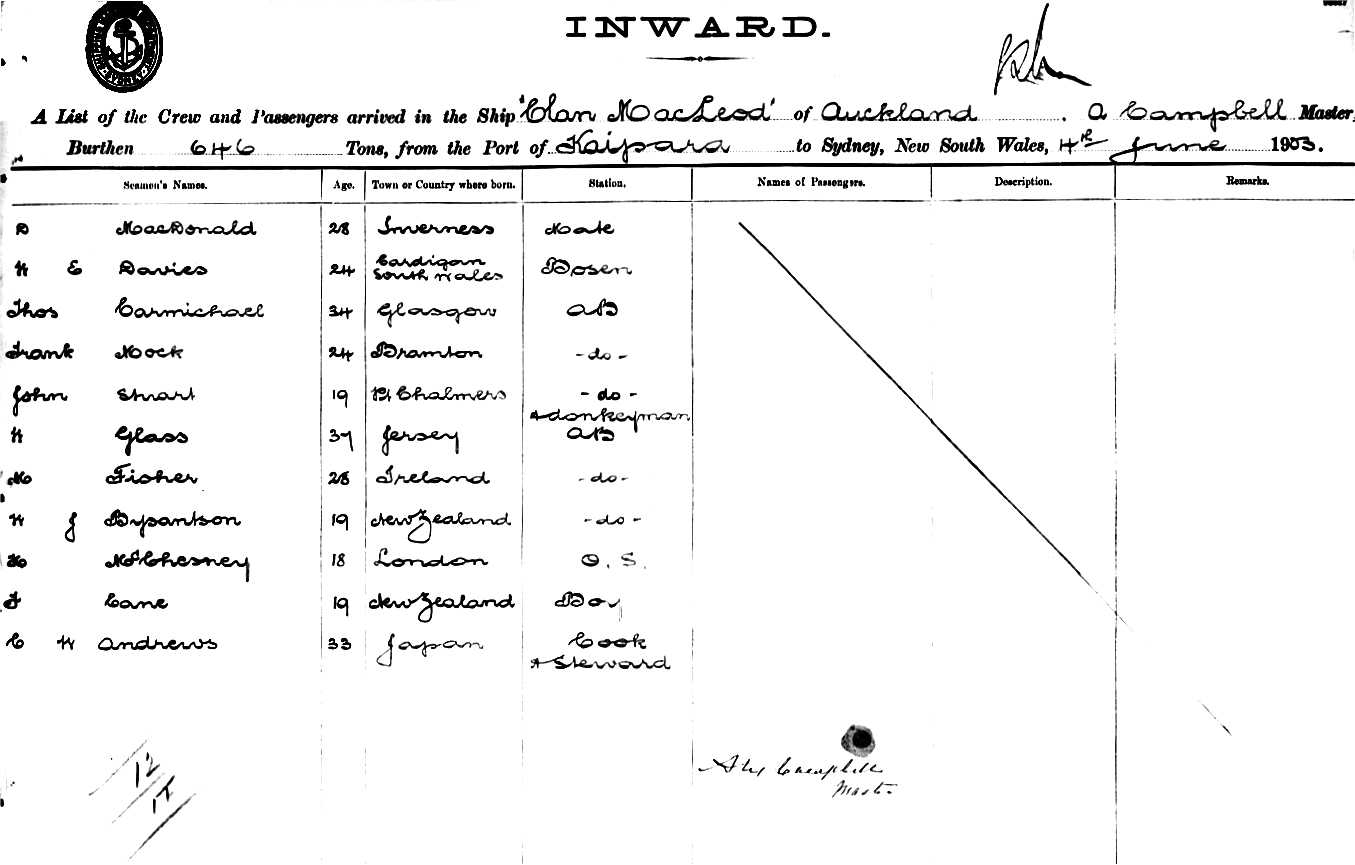 INWARD.
A List of the Crew and Passengers arrived in the Ship 'Clan MacLeod' of Auckland . A Campbell Master,
Burthen 646 Tons, from the Port of Kaipara to Sydney, New South Wales, 4th June 1903.
Seamen's Names. Age. Town or Country where born. Station. Names of Passengers. Description. Remarks.
D MacDonald 28 Inverness Mate
H E Davies 24 Cardigan South Wales Bosen
Thos Carmichael 34 Glasgow AB
Frank Mock 24 Bramton - do -
John Stuart 19 Pt Chalmers - do -
+ donkeyman
H Glass 37 Jersey AB
M Fisher 28 Ireland - do -
H J Bysantson 19 New Zealand - do -
H McChesney 18 London O. S.
F Cane 19 New Zealand Boy
C H Andrews 33 Japan Cook
+ Steward
Alex Campbell
Master
12